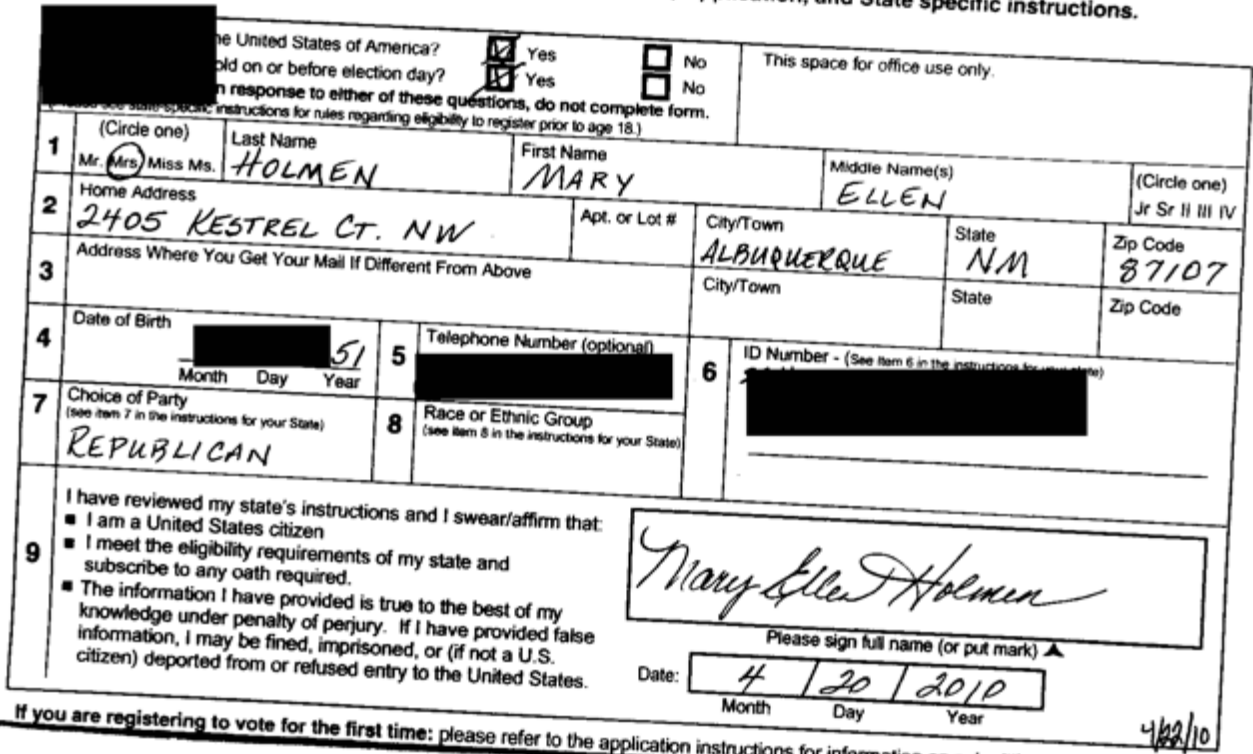 and State specific instructions.
he United States of America? Yes No
old on or before election day? Yes No
n response to either of these questions, do not complete form.
state-specific instructions for rules regarding eligibility to register prior to age 18.)
This space for office use only.
1 (Circle one) Mr. Mrs. Miss Ms. Last Name HOLMEN First Name MARY Middle Name(s) ELLEN (Circle one) Jr Sr II III IV
2 Home Address 2405 KESTREL CT. NW Apt. or Lot # City/Town ALBUQUERQUE State NM Zip Code 87107
3 Address Where You Get Your Mail If Different From Above City/Town State Zip Code
4 Date of Birth 51 Month Day Year
5 Telephone Number (optional)
6 ID Number - (See Item 6 in the instructions for your state)
7 Choice of Party (see item 7 in the instructions for your State) REPUBLICAN
8 Race or Ethnic Group (see item 8 in the instructions for your State)
9 I have reviewed my state's instructions and I swear/affirm that:
■ I am a United States citizen
■ I meet the eligibility requirements of my state and
subscribe to any oath required.
■ The information I have provided is true to the best of my
knowledge under penalty of perjury. If I have provided false
information, I may be fined, imprisoned, or (if not a U.S.
citizen) deported from or refused entry to the United States.
Mary Ellen Holmen
Please sign full name (or put mark)
Date: 4 20 2010
Month Day Year
4/22/10
If you are registering to vote for the first time: please refer to the application instructions for information